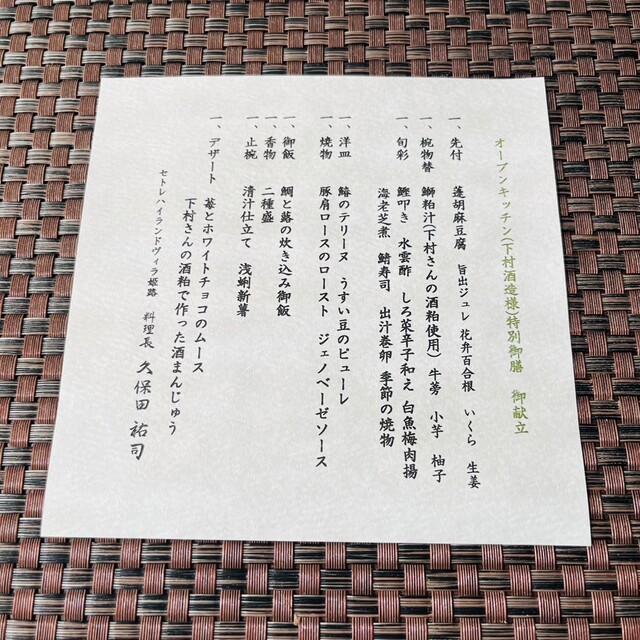 オープンキッチン(下村酒造様)特別御膳 御献立
一、先付 蓮胡麻豆腐 旨出ジュレ 花弁百合根 いくら 生姜
一、椀物替 鰤粕汁(下村さんの酒粕使用) 牛蒡 小芋 柚子
一、旬彩 鰹叩き 水雲酢 しろ菜辛子和え 白魚梅肉揚
海老芝煮 鯖寿司 出汁巻卵 季節の焼物
一、洋皿 鰆のテリーヌ うすい豆のピューレ
一、焼物 豚肩ロースのロースト ジェノベーゼソース
一、御飯 鯛と蕗の炊き込み御飯
一、香物 二種盛
一、止椀 清汁仕立て 浅蜊新薯
一、デザート 苺とホワイトチョコのムース
下村さんの酒粕で作った酒まんじゅう
セトレハイランドヴィラ姫路 料理長 久保田 祐司